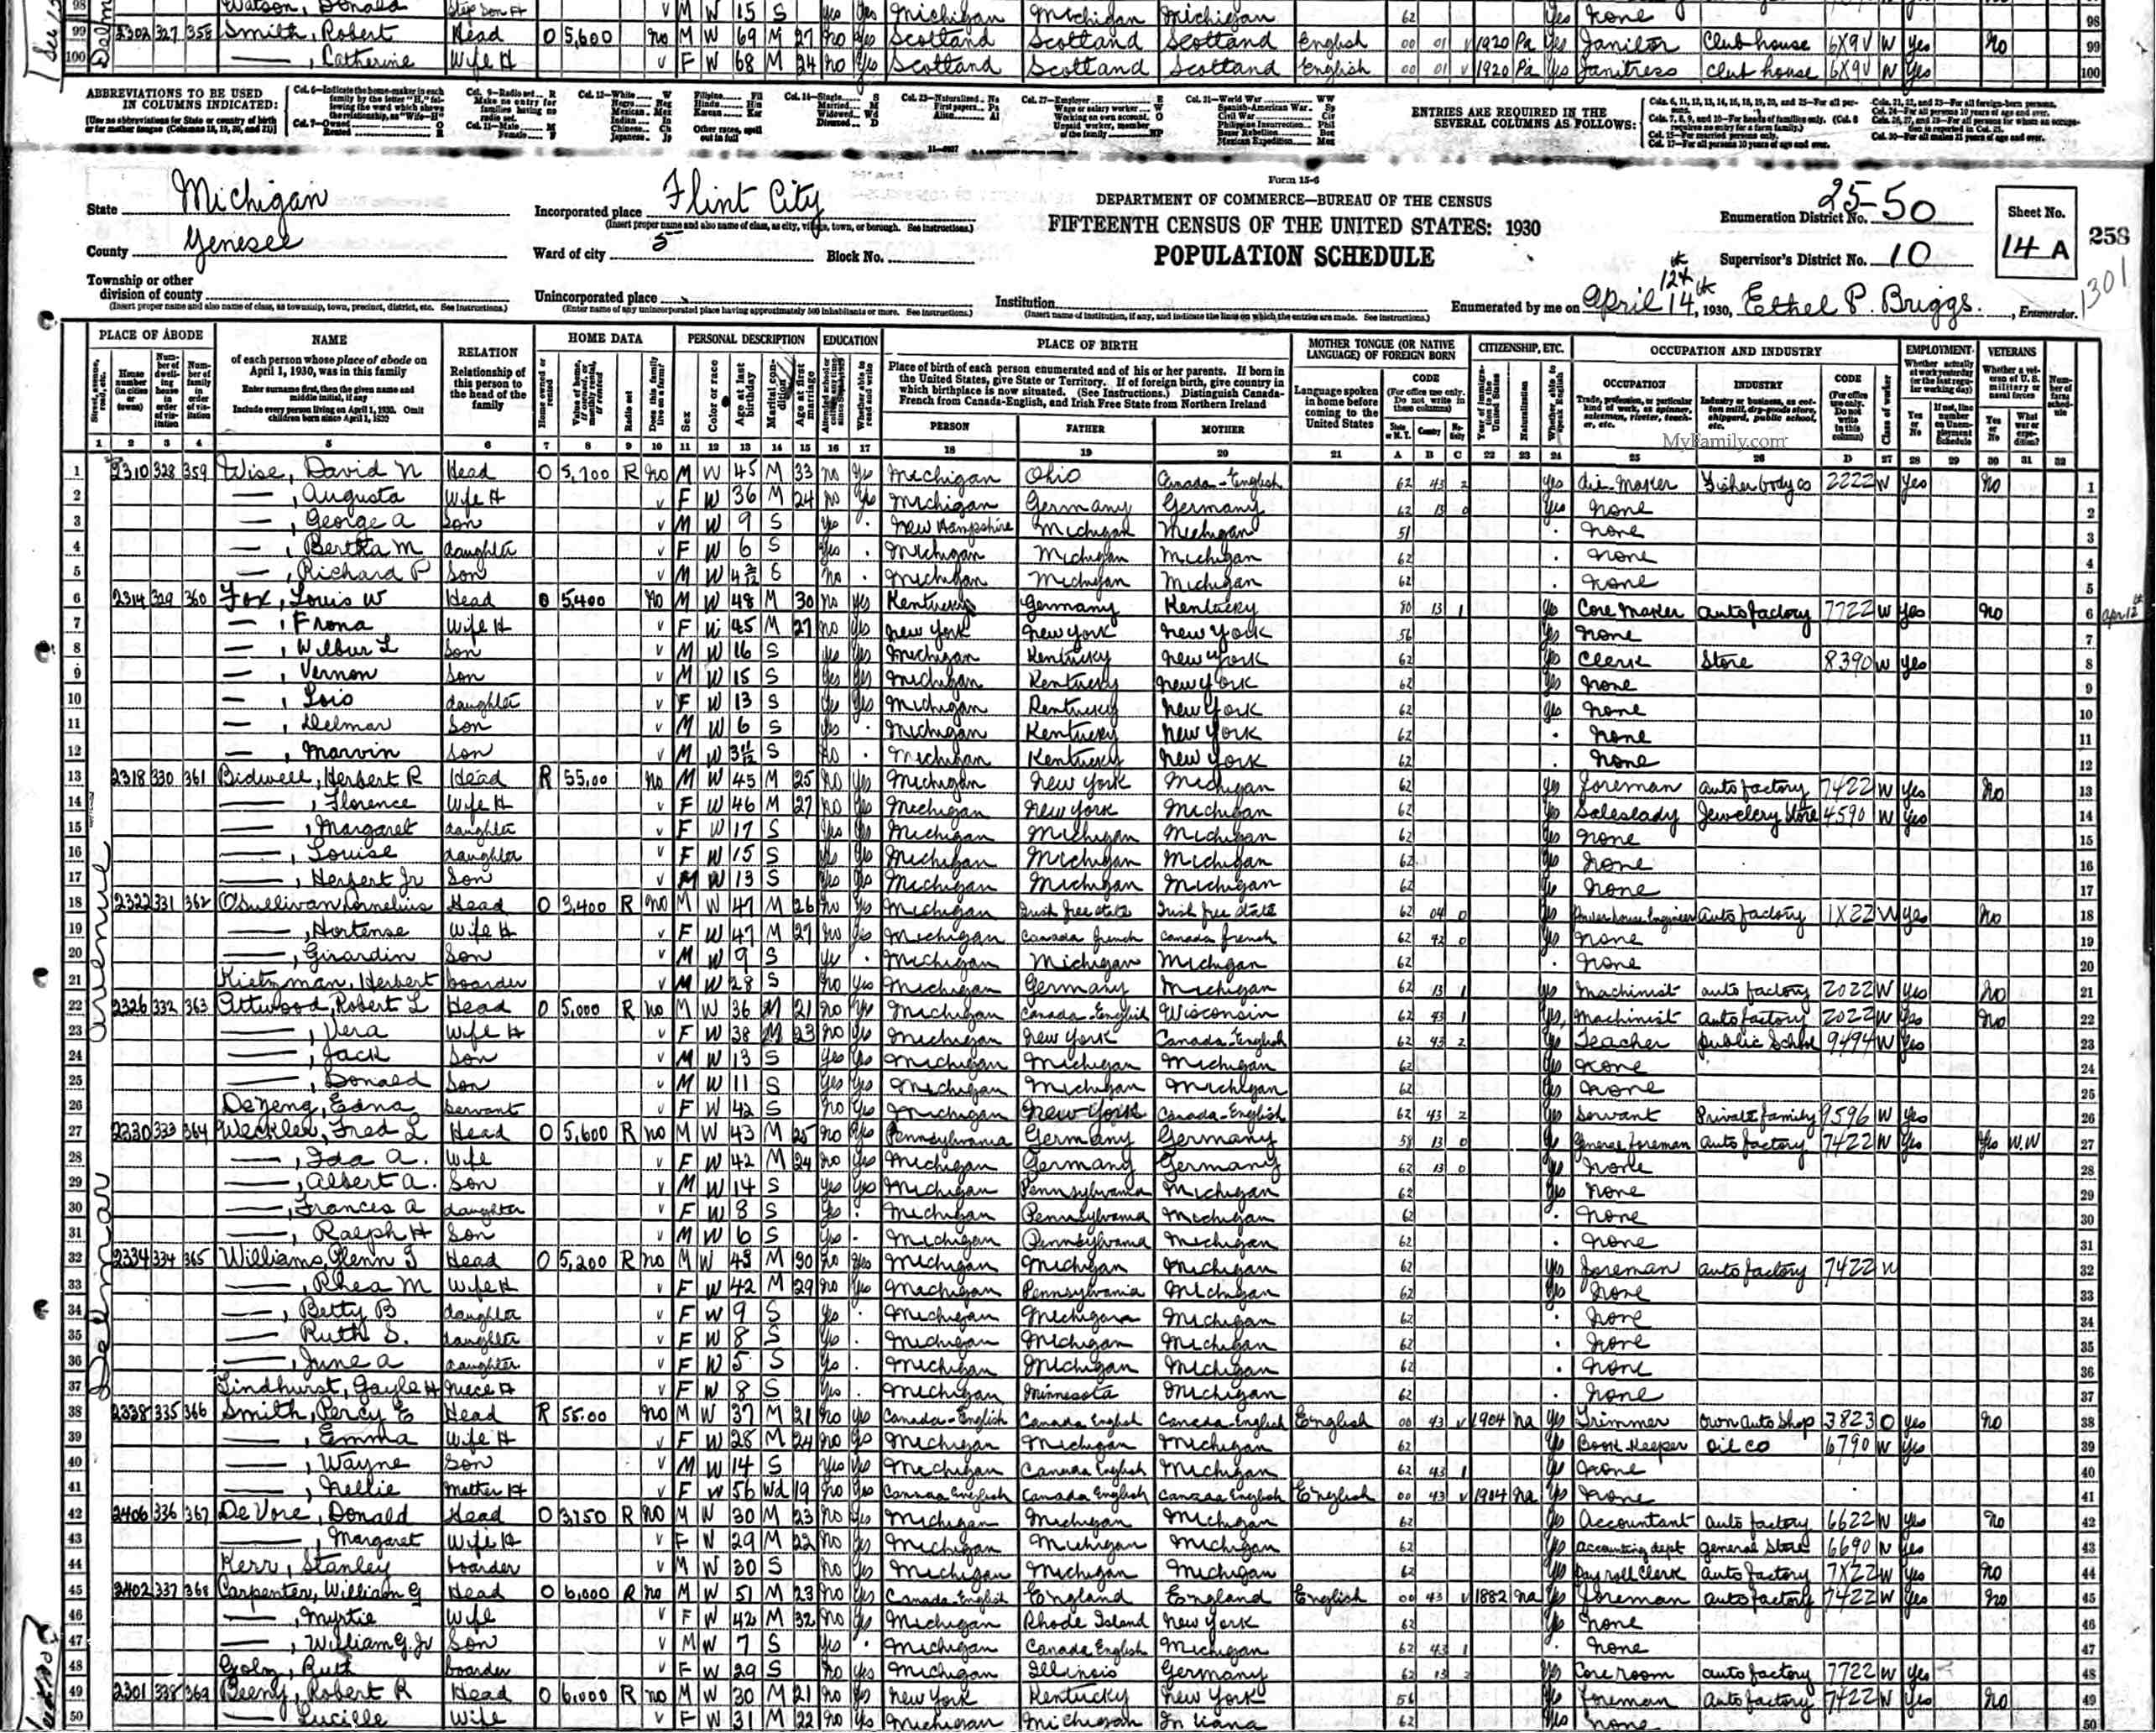 98 Watson, Donald Step Son H v M W 15 S yes yes Michigan Michigan Michigan 62 Yes None 98
99 2302 327 358 Smith, Robert Head O 5,600 no M W 69 M 27 no yes Scotland Scotland Scotland English 00 01 v 1920 Pa Yes Janitor Club house 6X9V W Yes No 99
100 —, Catherine Wife H v F W 68 M 24 no yes Scotland Scotland Scotland English 00 01 v 1920 Pa Yes Janitress Club house 6X9V W Yes 100
ABBREVIATIONS TO BE USED IN COLUMNS INDICATED:
ENTRIES ARE REQUIRED IN THE SEVERAL COLUMNS AS FOLLOWS:
Form 15-6
State Michigan
Incorporated place Flint City
DEPARTMENT OF COMMERCE—BUREAU OF THE CENSUS
Enumeration District No. 25-50
Sheet No. 14 A
258
1301
County Genesee
Ward of city 5
Block No.
FIFTEENTH CENSUS OF THE UNITED STATES: 1930
POPULATION SCHEDULE
Supervisor's District No. 10
Township or other division of county
Unincorporated place
Institution
Enumerated by me on April 12th 14th, 1930, Ethel P. Briggs., Enumerator.
PLACE OF ABODE NAME RELATION HOME DATA PERSONAL DESCRIPTION EDUCATION PLACE OF BIRTH MOTHER TONGUE (OR NATIVE LANGUAGE) OF FOREIGN BORN CITIZENSHIP, ETC. OCCUPATION AND INDUSTRY EMPLOYMENT VETERANS
of each person whose place of abode on April 1, 1930, was in this family
Relationship of this person to the head of the family
PERSON FATHER MOTHER
Language spoken in home before coming to the United States
MyFamily.com
1 2 3 4 5 6 7 8 9 10 11 12 13 14 15 16 17 18 19 20 21 A B C 22 23 24 25 26 D 27 28 29 30 31 32
1 2310 328 359 Wise, David N Head O 5,700 R no M W 45 M 33 no Yes Michigan Ohio Canada-English 62 43 2 yes die maker Fisher body co 2222 W yes no 1
2 —, Augusta Wife H v F W 36 M 24 no yes Michigan Germany Germany 62 13 0 Yes none 2
3 —, George A Son v M W 9 S yes New Hampshire Michigan Michigan 51 none 3
4 —, Bertha M daughter v F W 6 S Yes Michigan Michigan Michigan 62 none 4
5 —, Richard P Son v M W 4 2/12 S no Michigan Michigan Michigan 62 none 5
6 2314 329 360 Fox, Louis W Head O 5,400 no M W 48 M 30 no yes Kentucky Germany Kentucky 80 13 1 yes Core maker auto factory 7722 W yes no 6 Apr 12th
7 —, Frona Wife H v F W 45 M 27 no yes New York New York New York 56 Yes none 7
8 —, Wilbur L Son v M W 16 S yes Yes Michigan Kentucky New York 62 yes Clerk Store 8390 W yes 8
9 —, Vernon Son v M W 15 S Yes yes Michigan Kentucky New York 62 yes none 9
10 —, Lois daughter v F W 13 S yes yes Michigan Kentucky New York 62 yes none 10
11 —, Delmar Son v M W 6 S yes Michigan Kentucky New York 62 none 11
12 —, Marvin Son v M W 3 11/12 S no Michigan Kentucky New York 62 none 12
13 2318 330 361 Bidwell, Herbert R Head R 55.00 no M W 45 M 25 no yes Michigan New York Michigan 62 yes Foreman auto factory 7422 W yes no 13
14 —, Florence Wife H v F W 46 M 27 no yes Michigan New York Michigan 62 yes Saleslady Jewelery Store 4590 W yes 14
15 —, Margaret daughter v F W 17 S yes yes Michigan Michigan Michigan 62 yes none 15
16 —, Louise daughter v F W 15 S yes yes Michigan Michigan Michigan 62 yes none 16
17 —, Herbert Jr Son v M W 13 S yes yes Michigan Michigan Michigan 62 yes none 17
18 2322 331 362 O'Sullivan, Cornelius Head O 3,400 R no M W 47 M 26 no yes Michigan Irish free state Irish free state 62 04 0 yes Power house Engineer auto factory 1X22 W yes no 18
19 —, Hortense Wife H v F W 47 M 27 no yes Michigan Canada french Canada french 62 42 0 yes none 19
20 —, Girardin Son v M W 9 S yes Michigan Michigan Michigan 62 none 20
21 Kietzman, Herbert boarder v M W 28 S no yes Michigan Germany Michigan 62 13 1 yes Machinist auto factory 2022 W yes no 21
22 2326 332 363 Attwood, Robert L Head O 5,000 R no M W 36 M 21 no yes Michigan Canada-English Wisconsin 62 43 1 yes Machinist auto factory 2022 W yes no 22
23 —, Vera Wife H v F W 38 M 23 no yes Michigan New York Canada-English 62 43 2 yes Teacher public School 9494 W yes 23
24 —, Jack Son v M W 13 S yes yes Michigan Michigan Michigan 62 yes none 24
25 —, Donald Son v M W 11 S yes yes Michigan Michigan Michigan 62 yes none 25
26 DeZeng, Edna Servant v F W 42 S no yes Michigan New York Canada-English 62 43 2 yes Servant Private family 9596 W yes 26
27 2330 333 364 Wecklee, Fred L Head O 5,600 R no M W 43 M 25 no yes Pennsylvania Germany Germany 58 13 0 yes General foreman auto factory 7422 W yes yes W.W 27
28 —, Ida A. Wife v F W 42 M 24 no yes Michigan Germany Germany 62 13 0 yes none 28
29 —, Albert A. Son v M W 14 S yes yes Michigan Pennsylvania Michigan 62 yes none 29
30 —, Frances A daughter v F W 8 S yes Michigan Pennsylvania Michigan 62 none 30
31 —, Ralph H Son v M W 6 S yes Michigan Pennsylvania Michigan 62 none 31
32 2334 334 365 Williams, Glenn Head O 5,200 R no M W 43 M 30 no yes Michigan Michigan Michigan 62 yes Foreman auto factory 7422 W 32
33 —, Rhea M Wife H v F W 42 M 29 no yes Michigan Pennsylvania Michigan 62 yes none 33
34 —, Betty B daughter v F W 9 S yes Michigan Michigan Michigan 62 none 34
35 — Ruth S. daughter v F W 8 S yes Michigan Michigan Michigan 62 none 35
36 —, June A daughter v F W 5 S yes Michigan Michigan Michigan 62 none 36
37 Lindhurst, Gayle H Niece v F W 8 S yes Michigan Minnesota Michigan 62 none 37
38 2338 335 366 Smith, Percy E Head R 55.00 no M W 37 M 21 no yes Canada-English Canada English Canada-English English 00 43 v 1904 na yes Trimmer own auto shop 3823 O yes no 38
39 —, Emma Wife H v F W 28 M 24 no yes Michigan Michigan Michigan 62 yes Book-Keeper oil co 6790 W yes 39
40 —, Wayne Son v M W 14 S yes yes Michigan Canada English Michigan 62 43 1 yes none 40
41 —, Nellie Mother H v F W 56 Wd 19 no yes Canada English Canada English Canada English English 00 43 v 1904 na yes none 41
42 2406 336 367 DeVore, Donald Head O 3750 R no M W 30 M 23 no yes Michigan Michigan Michigan 62 yes Accountant auto factory 6622 W yes no 42
43 —, Margaret Wife H v F W 29 M 22 no yes Michigan Michigan Michigan 62 yes accounting dept general Store 6690 W yes 43
44 Kerr, Stanley boarder v M W 30 S no yes Michigan Michigan Michigan 62 yes Payroll Clerk auto factory 7X22 W yes no 44
45 2402 337 368 Carpenter, William G Head O 6,000 R no M W 51 M 23 no yes Canada-English England England English 00 43 v 1882 na yes Foreman auto factory 7422 W yes no 45
46 —, Myrtie Wife v F W 42 M 32 no yes Michigan Rhode Island New York 62 yes none 46
47 —, William G. Jr Son v M W 7 S yes Michigan Canada English Michigan 62 43 1 none 47
48 Golm, Ruth boarder v F W 29 S no yes Michigan Illinois Germany 62 13 2 yes Core room auto factory 7722 W yes 48
49 2301 338 369 Beeny, Robert R Head O 6,000 R no M W 30 M 21 no yes New York Kentucky New York 56 yes Foreman auto factory 7422 W yes no 49
50 — Lucille Wife v F W 31 M 22 no yes Michigan Michigan Indiana 62 yes none 50
Delmar Avenue